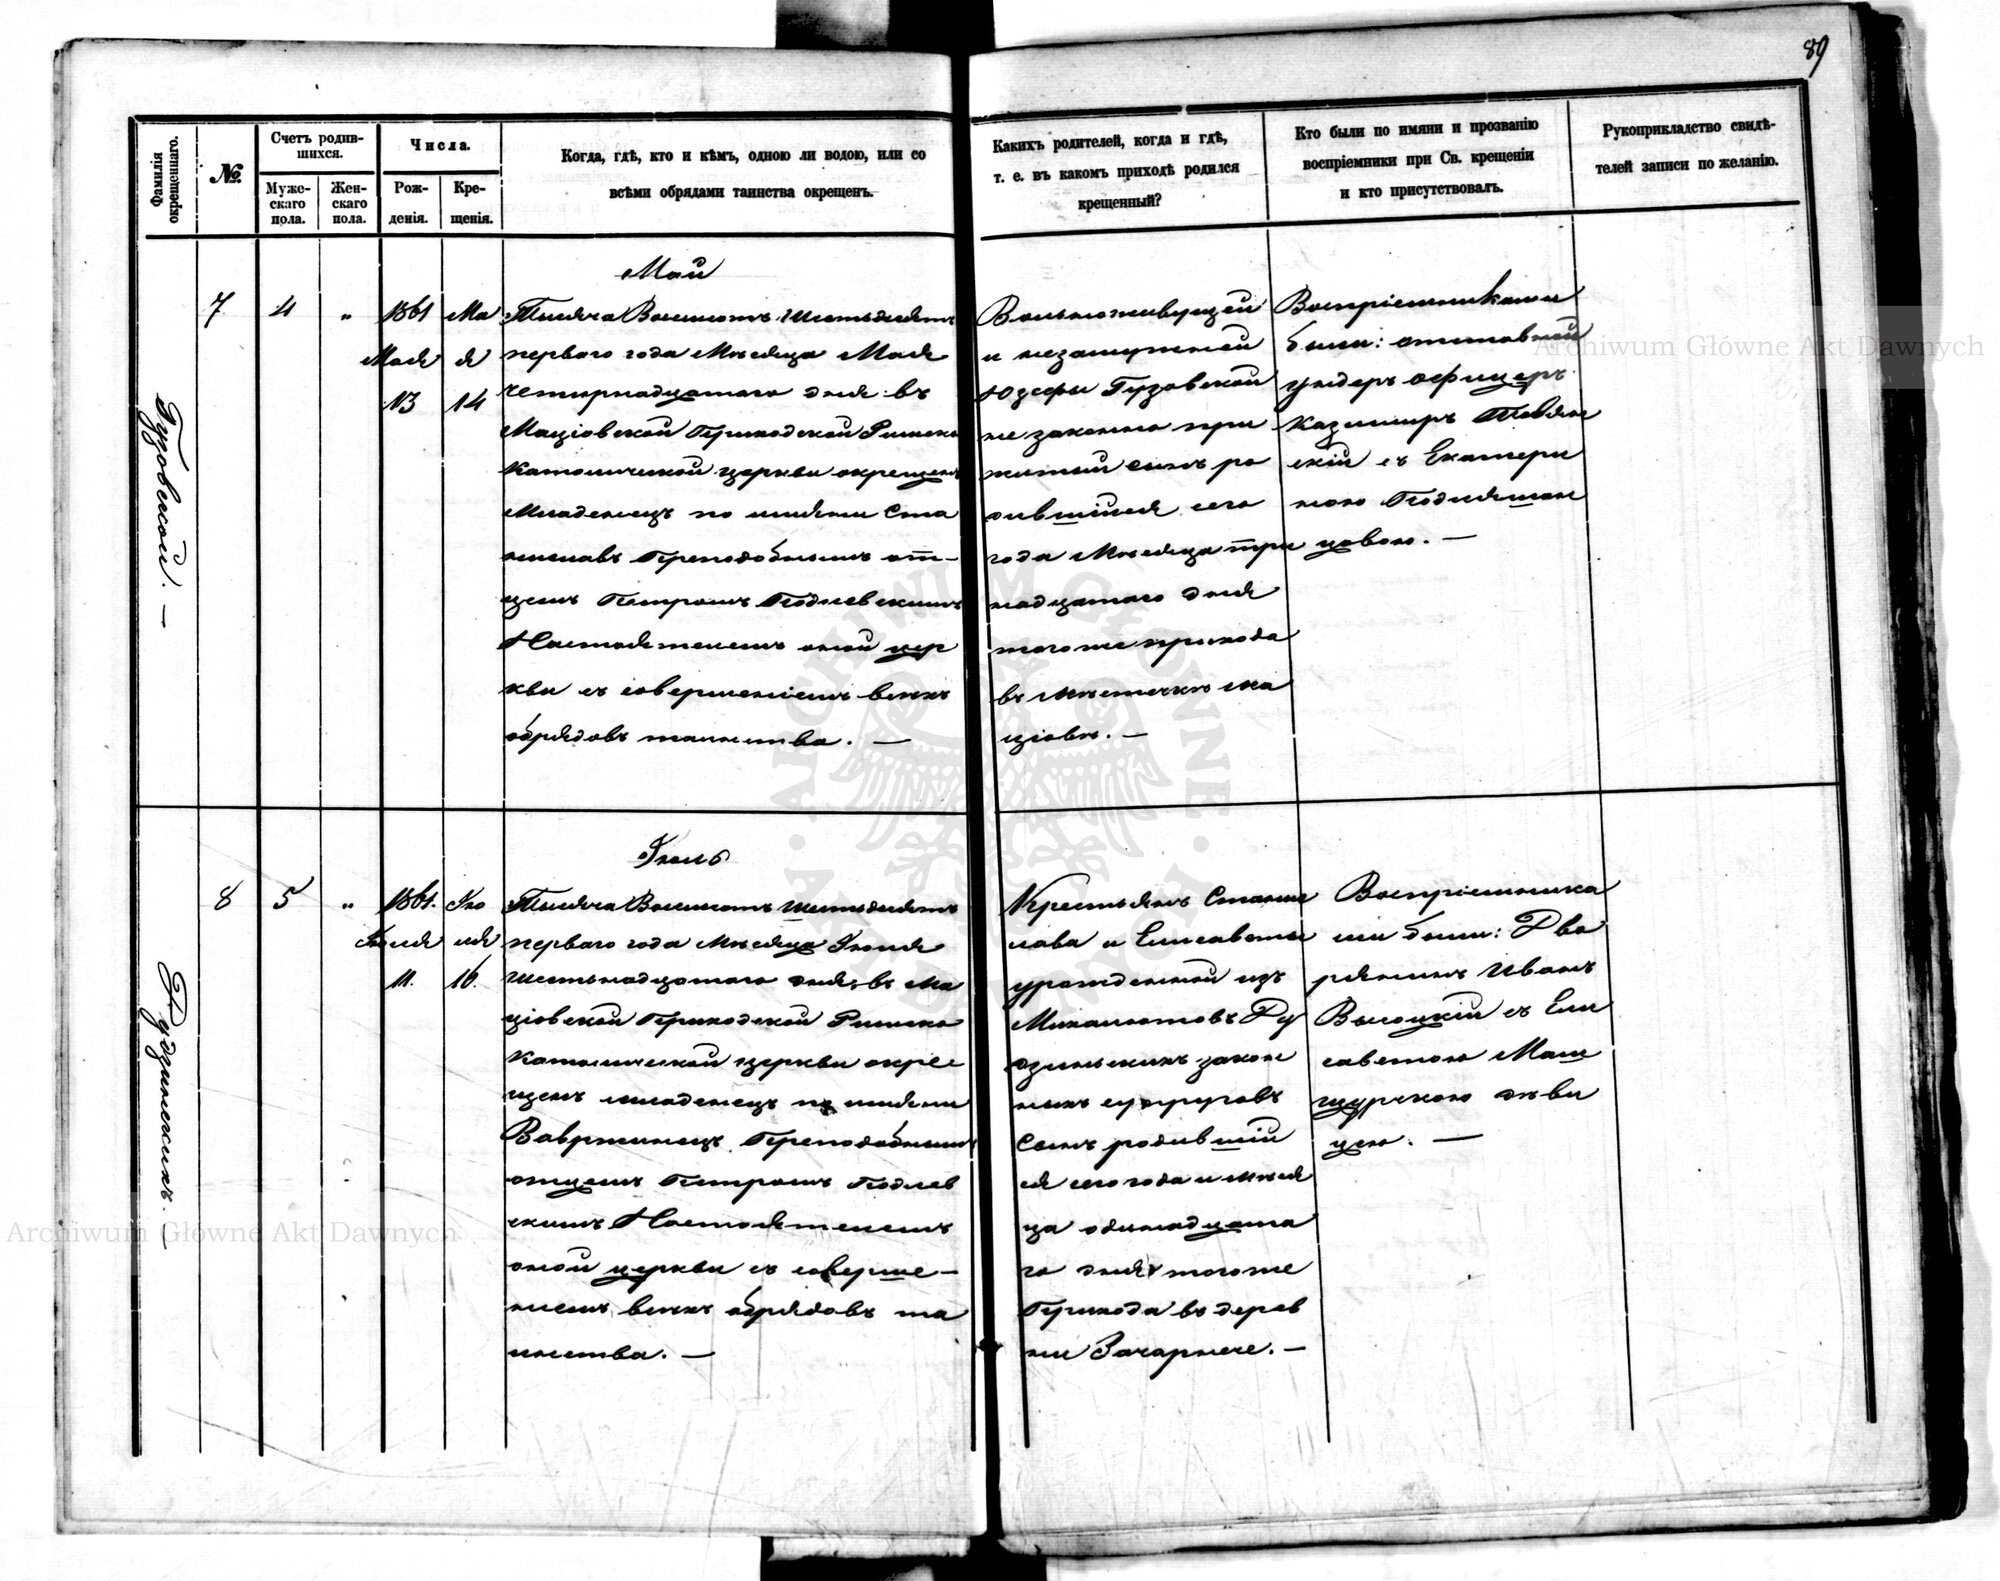 89
Фамилія окрещеннаго.
№
Счетъ родив-
шихся.
Муже-
скаго
пола.
Жен-
скаго
пола.
Числа.
Рож-
денія.
Кре-
щенія.
Когда, гдѣ, кто и кѣмъ, одною ли водою, или со
всѣми обрядами таинства окрещенъ.
Какихъ родителей, когда и гдѣ,
т. е. въ какомъ приходѣ родился
крещенный?
Кто были по имяни и прозванію
воспріемники при Св. крещеніи
и кто присутствовалъ.
Рукоприкладство свидѣ-
телей записи по желанію.
Гузовской. —
7
4
"
1861
Мая
13
Ма
я
14
Май
Тысяча Восемсотъ Шестьдесятъ
перваго года Мѣсяца Мая
четырнадцатаго дня въ
Маціовской Приходской Римско
Католической церкви окрещенъ
Младенецъ по имяни Ста
ниславъ Преподобнымъ от-
цемъ Петромъ Подлевскимъ
Настоятелемъ оной цер
кви съ совершеніемъ всѣхъ
обрядовъ таинства. —
Вольноживущей
и незамужней
Юзефы Гузовской
не законно при
житый сынъ ро
дившійся сего
года Мѣсяца три
надцатаго дня
тогоже прихода
въ Мѣстечкѣ Ма
ціовѣ. —
Воспріемниками
были: отставной
ундеръ офицеръ
Казимиръ
скій съ Екатери
ною
цовою. —
Рудзинскихъ. —
8
5
"
1861.
Іюля
11.
Ію
ля
16.
Іюль
Тысяча Восемсотъ Шестьдесятъ
перваго года Мѣсяца Іюля
шестьнадцатаго дня, въ Ма
ціовской Приходской Римско
Католической церкви окре
щенъ младенецъ по имяни
Вавржинецъ Преподобнымъ
отцемъ Петромъ Подлев
скимъ Настоятелемъ
оной церкви съ соверше-
ніемъ всѣхъ обрядовъ та
инства. —
Крестьянъ Станис
лава и Елисаветы
урожденной изъ
Михалютовъ Ру
дзинскихъ закон
ныхъ супруговъ
Сынъ родившій
ся сего года и мѣся
ца одинадцата
го дня тогоже
Прихода въ дерев
ни Зачернече. —
Воспріемника
ми были: Дво
рянинъ Иванъ
Высоцкій съ Ели
саветою Маш
щурскою дѣви
цею. —
Archiwum Główne Akt Dawnych
Archiwum Główne Akt Dawnych
ARCHIWUM GŁÓWNE AKT DAWNYCH